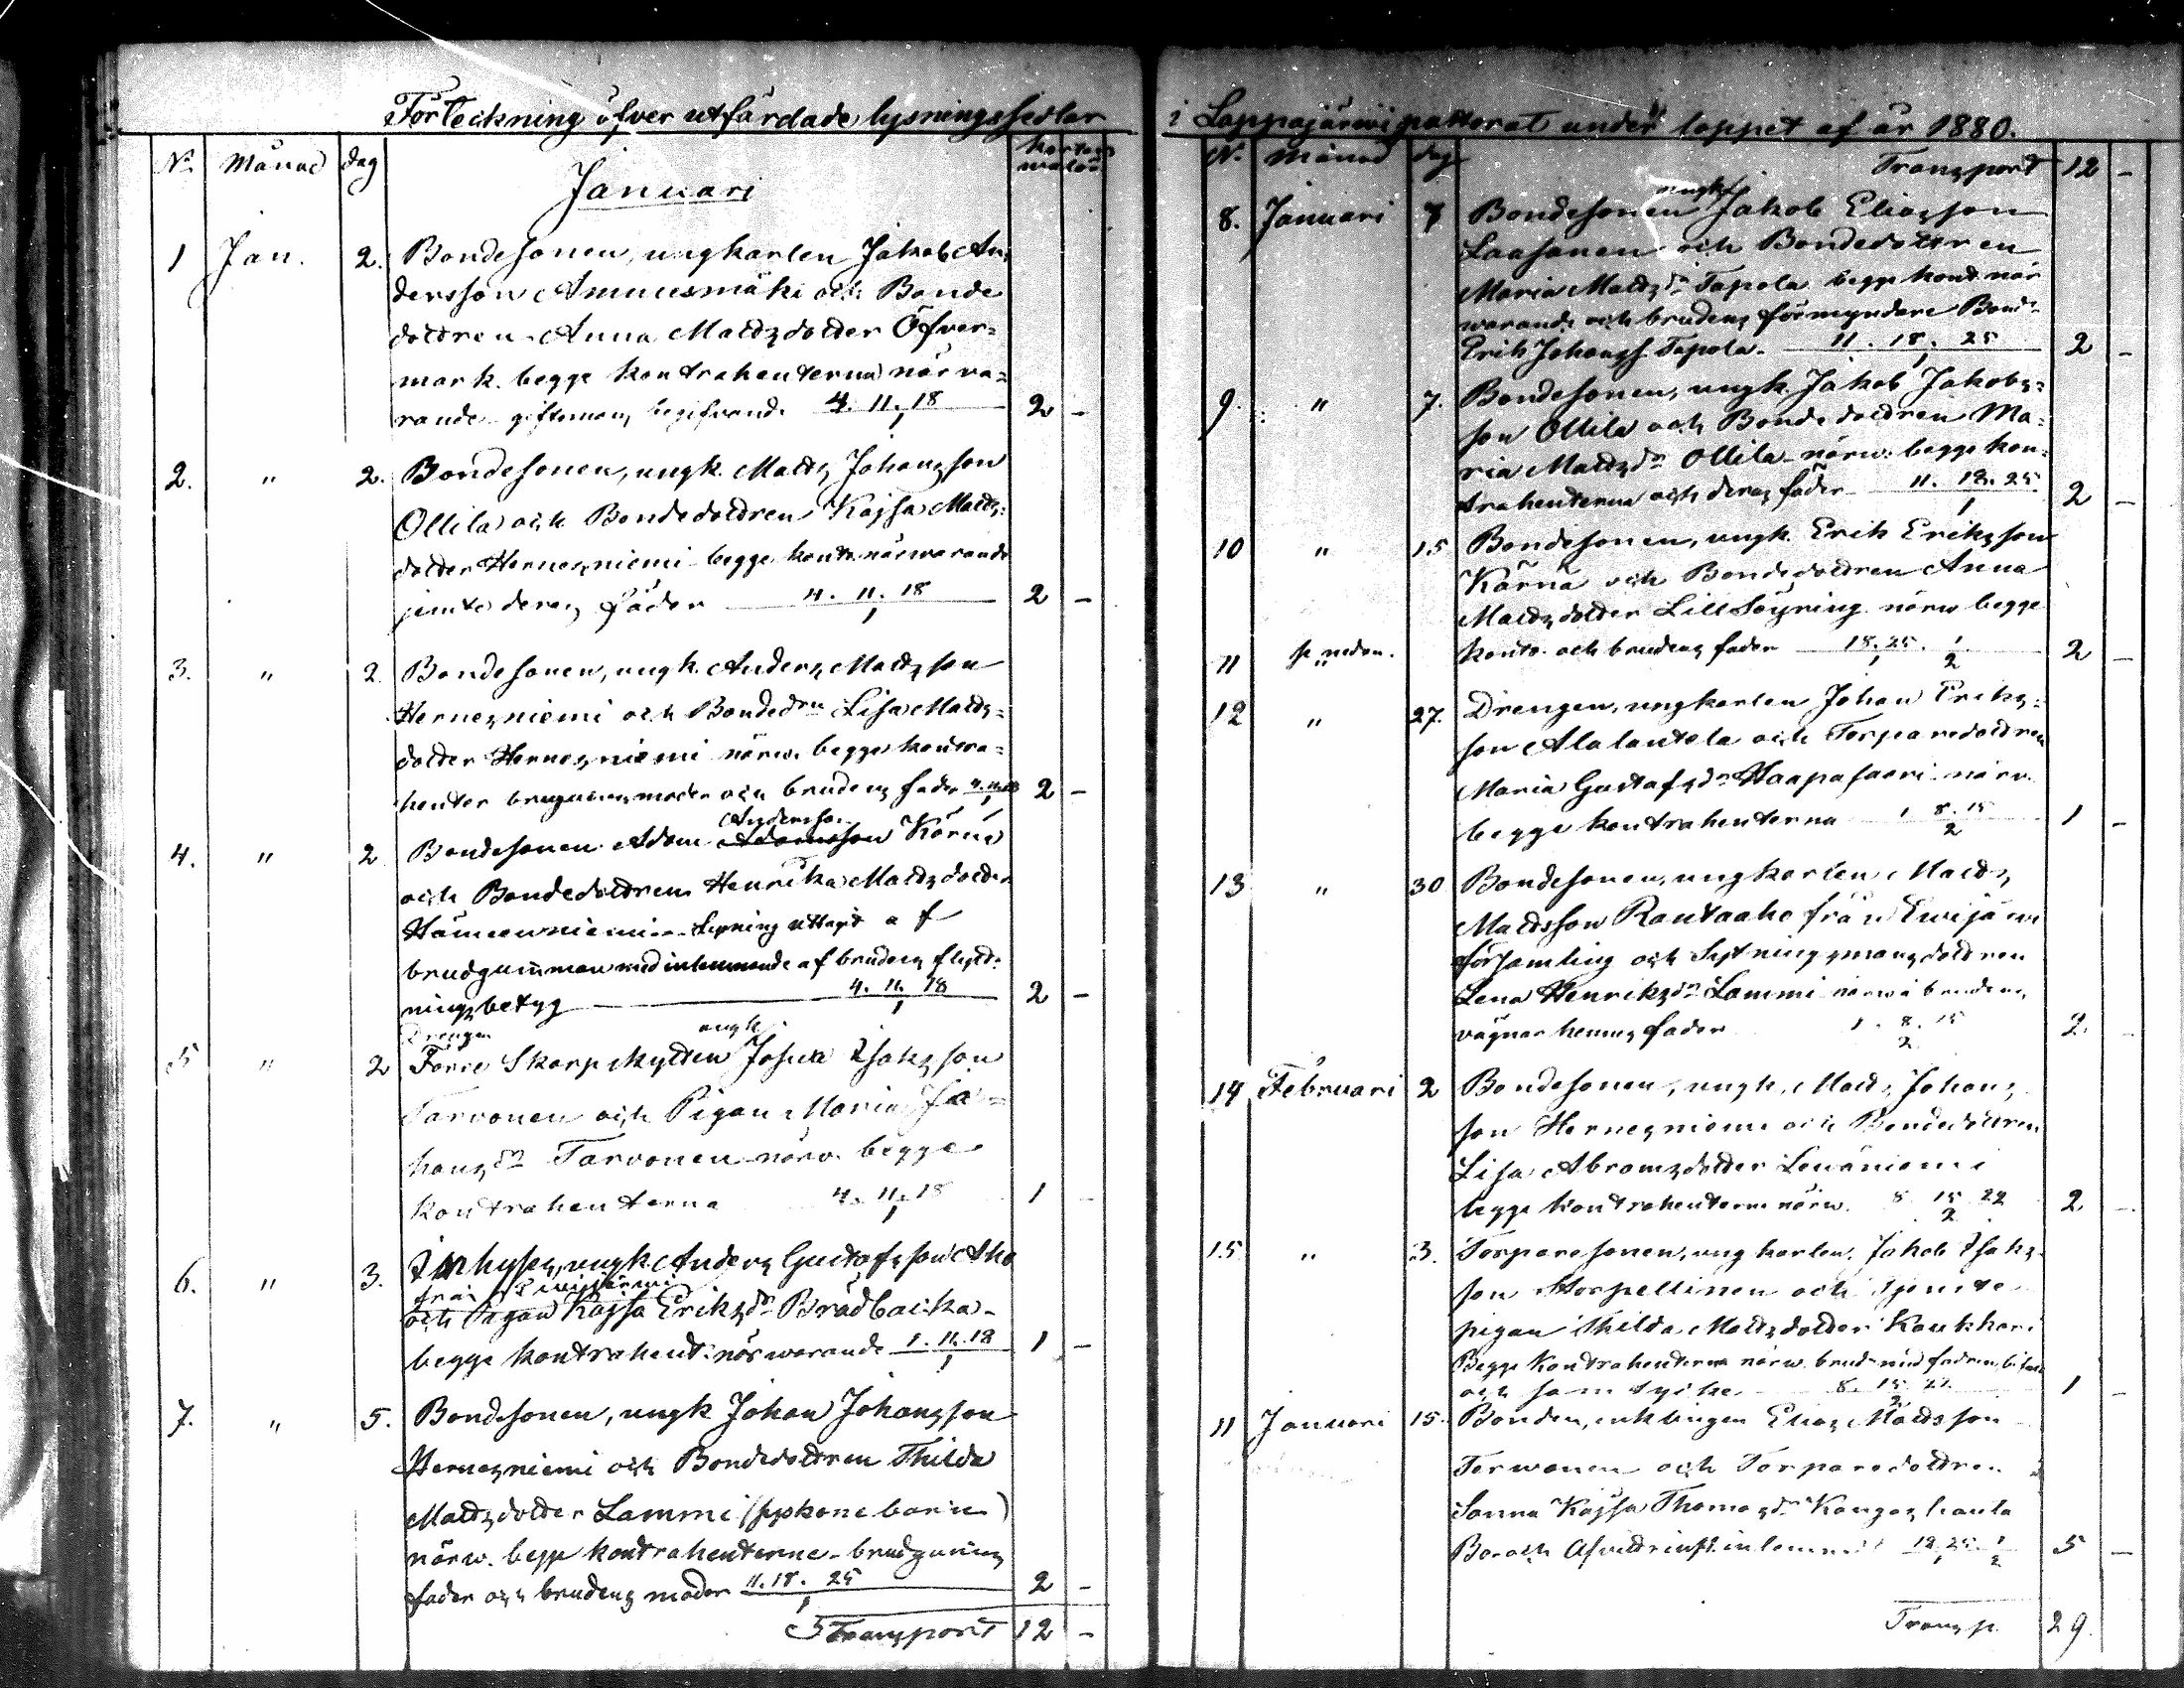 Förteckning öfver utfärdade lysningssedlar
No Månad dag
Januari
1 Jan. 2. Bondesonen, ungkarlen Jakob An-
dersson Annusmäki och Bonde
dottren Anna Mattsdotter Öfver=
mark begge kontrahenterna närva=
rande giftomans begifvande 4. 11. 18 / 1 2 -
2. " 2. Bondesonen, ungk. Matts Johansson
Ollila och Bondedottren Kajsa Matts=
dotter Hernesniemi begge kontr. närvarande
jemte deras fäder 4. 11. 18 / 1 2 -
3. " 2. Bondesonen, ungk. Anders Mattsson
Hernesniemi och Bondedrn Lisa Matts=
dotter Hernesniemi närv. begge kontra=
henter brudgummens moder och brudens fader 4. 11. 18 / 1 2 -
Andersson
4. " 2 Bondesonen Adam Adamsson Kärnä
och Bondedottren Henrika Mattsdotter
Hämeenniemi - Lysning uttagit af
brudgumman med inlemnande af brudens flytt-
ningsbetyg 4. 11. 18 / 1 2 -
Drengen ungk.
5 " 2 Förre Skarpskytten Josua Isaksson
Tarvonen och Pigan Maria Jo=
hansdr Tarvonen närv. begge
kontrahenterna 4. 11. 18 / 1 1 -
6. " 3. Inhyses, ungk. Anders Gustafsson Aho
från Ewijärwi
och Pigan Kajsa Eriksdr Brådbacka
begge kontrahent. närwarande 4. 11. 18 / 1 1 -
7. " 5. Bondesonen, ungk Johan Johansson
Hernesniemi och Bondedottren Thilda
Mattsdotter Lammi (syskonebarn)
närw. begge kontrahenterne - brudgummens
fader och brudens moder 11. 18. 25 / 1 2 -
Transport 12 -
i Lappajärwi pastorat under loppet af år 1880.
No Månad dag Transport 12 -
ungk
8. Januari 7 Bondesonen Jakob Eliasson
Laasanen och Bondedottren
Maria Mattsdr Tapola begge kont. när
warande och brudens förmyndare Bond.
Erik Johanss. Tapola. 11. 18. 25 / 1 2 -
9. " 7. Bondesonen, ungk. Jakob Jakobs=
son Ollila och Bondedottren Ma=
ria Mattsdr Ollila närw. begge kon=
trahenterna och deras fäder 11. 18. 25 / 1 2 -
10 " 15 Bondesonen, ungk. Erik Eriksson
Kärnä och Bondedottren Anna
Mattsdotter Lill Söyring närw begge
kontr. och brudens fader 18. 25. 1 / 1 2 2 -
11 se nedan.
12 " 27. Drengen, ungkarlen Johan Eriks=
son Alalantela och Torparedottren
Maria Gustafsdr Haapasaari närv.
begge kontrahenterna 1. 8. 15 / 2 1 -
13 " 30 Bondesonen, ungkarlen Matts
Mattsson Rantaaho från Ewijärwi
församling och Sytningsmansdottren
Lena Henriksdr Lammi närw å brudens
vägnar hennes fader 1. 8. 15 / 2 2. -
14 Februari 2 Bondesonen, ungk. Matts Johans
son Hernesniemi och Bondedottren
Lisa Abramsdotter Lenäniemi
begge kontrahenterne närw. 8 15 22 / 2 2 -
15 " 3. Torparesonen, ungkarlen Jakob Isaks
son Storpellinen och tjenste
pigan Thilda Mattsdotter Kaukkari
Begge Kontrahenterna närw. brud. med fadrens bifall
och samtycke 8. 15 22 / 2 1 -
11 Januari 15. Bonden, enklingen Elias Mattsson
Terwonen och Torparedottren
Sanna Kajsa Thomasdr Kangashauta
Bo- och Afwittr.inst. inlemnat 18. 25. 1 / 1 2 5 -
Transp. 29.